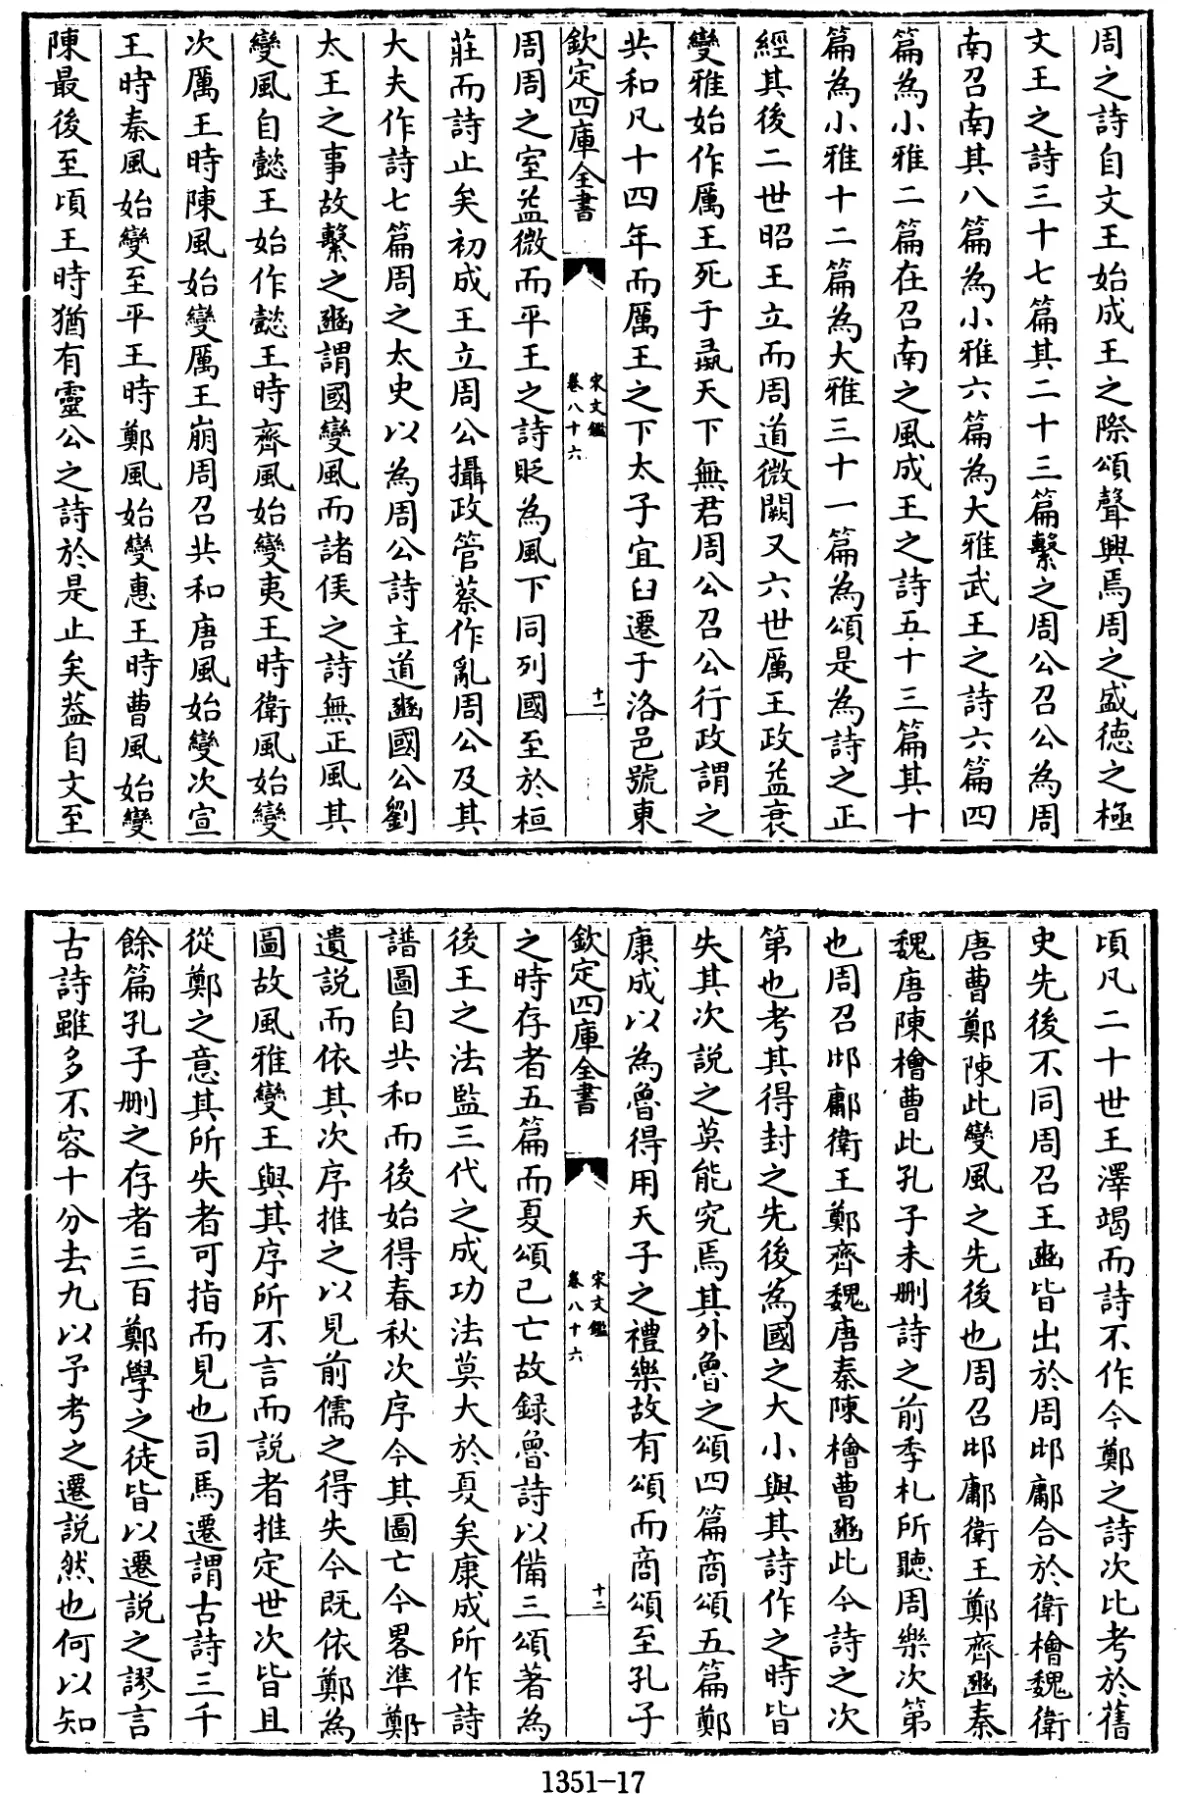 周之詩自文王始成王之際頌聲興焉周之盛德之極
文王之詩三十七篇其二十三篇繫之周公召公為周
南召南其八篇為小雅六篇為大雅武王之詩六篇四
篇為小雅二篇在召南之風成王之詩五十三篇其十
篇為小雅十二篇為大雅三十一篇為頌是為詩之正
經其後二世昭王立而周道微闕又六世厲王政益衰
變雅始作厲王死于彘天下無君周公召公行政謂之
共和凡十四年而厲王之下太子宜臼遷于洛邑號東
欽定四庫全書
宋文鑑
卷八十六
十一
周周之室益微而平王之詩貶為風下同列國至於桓
莊而詩止矣初成王立周公攝政管蔡作亂周公及其
大夫作詩七篇周之太史以為周公詩主道豳國公劉
太王之事故繫之豳謂國變風而諸侯之詩無正風其
變風自懿王始作懿王時齊風始變夷王時衛風始變
次厲王時陳風始變厲王崩周召共和唐風始變次宣
王時秦風始變至平王時鄭風始變惠王時曹風始變
陳最後至頃王時猶有靈公之詩於是止矣葢自文至
頃凡二十世王澤竭而詩不作今鄭之詩次比考於舊
史先後不同周召王豳皆出於周邶鄘合於衛檜魏衛
唐曹鄭陳此變風之先後也周召邶鄘衛王鄭齊豳秦
魏唐陳檜曹此孔子未刪詩之前季札所聽周樂次第
也周召邶鄘衛王鄭齊魏唐秦陳檜曹豳此今詩之次
第也考其得封之先後為國之大小與其詩作之時皆
失其次說之莫能究焉其外魯之頌四篇商頌五篇鄭
康成以為魯得用天子之禮樂故有頌而商頌至孔子
欽定四庫全書
宋文鑑
卷八十六
十二
之時存者五篇而夏頌已亡故録魯詩以備三頌著為
後王之法監三代之成功法莫大於夏矣康成所作詩
譜圖自共和而後始得春秋次序今其圖亡今畧準鄭
遺説而依其次序推之以見前儒之得失今既依鄭為
圖故風雅變王與其序所不言而説者推定世次皆且
從鄭之意其所失者可指而見也司馬遷謂古詩三千
餘篇孔子刪之存者三百鄭學之徒皆以遷説之謬言
古詩雖多不容十分去九以予考之遷説然也何以知
1351-17